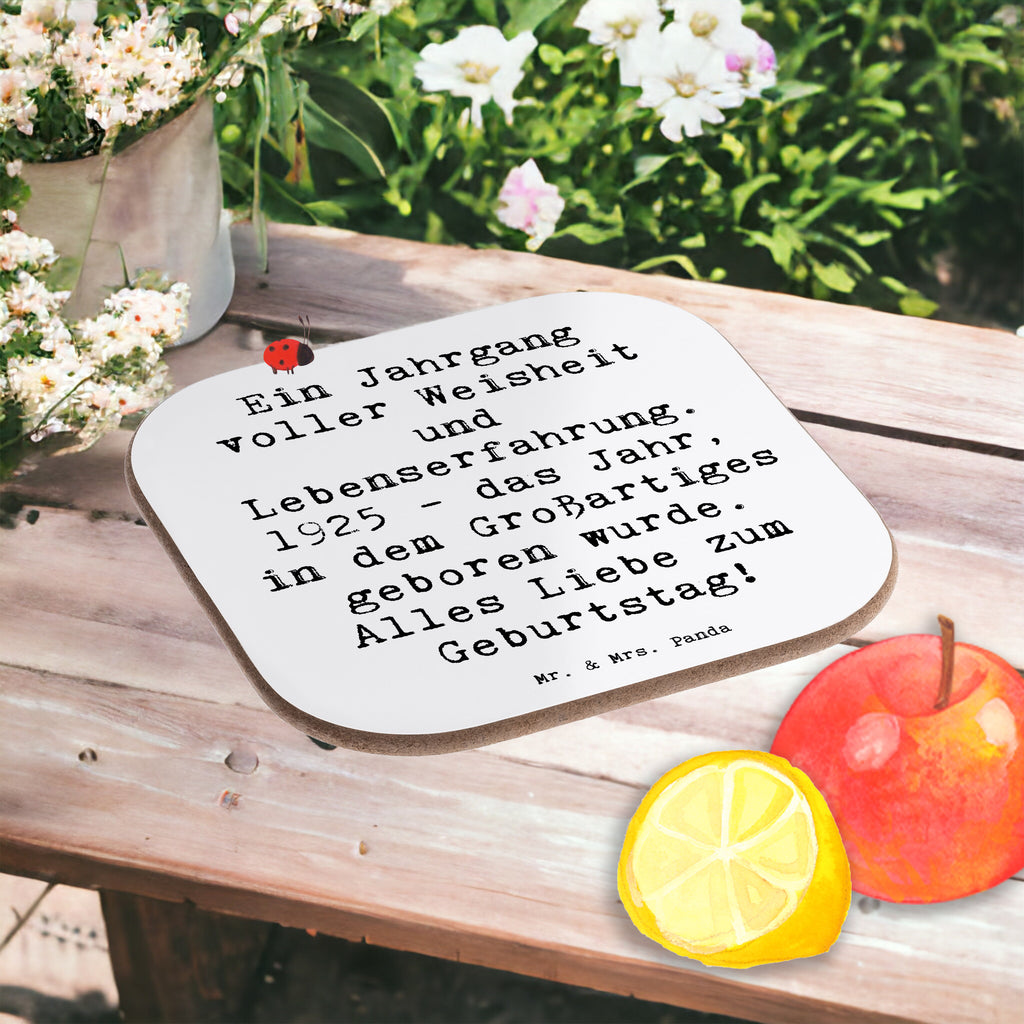 Ein Jahrgang
voller Weisheit
und
Lebenserfahrung.
1925 - das Jahr,
in dem Großartiges
geboren wurde.
Alles Liebe zum
Geburtstag!
Mr. & Mrs. Panda